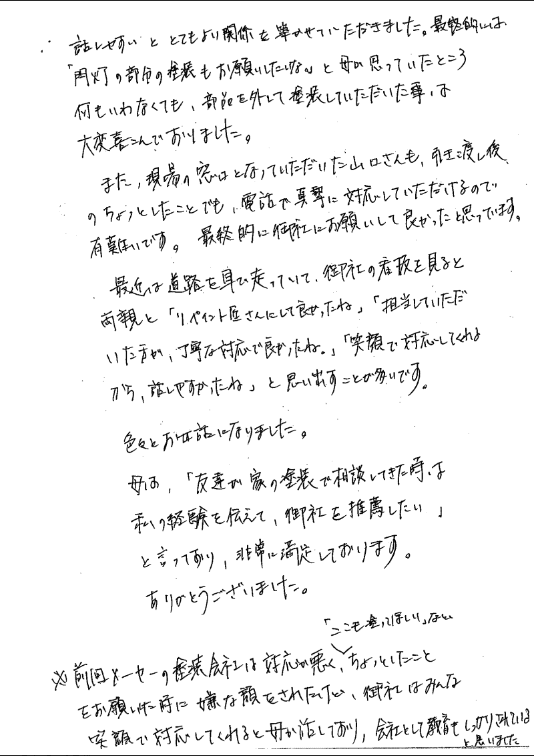 話しやすい ととてもよい関係を築かせていただきました。最終的には
「門灯の部分の塗装もお願いしたいな」と母が思っていたところ
何もいわなくても、部品を外して塗装していただいた事は
大変喜こんでおりました。
また、現場の窓口となっていただいた山口さんも、引き渡し後
のちょっとしたことでも、電話で真摯に対応していただけるので
有難いです。最終的に御社にお願いして良かったと思っています。
最近は道路を車で走っていて、御社の看板を見ると
両親と「リペイント匠さんにして良かったね」「担当していただ
いた方が、丁寧な対応で良かったね。」「笑顔で対応してくれる
から、話しやすかったね」と思い出すことが多いです。
色々とお世話になりました。
母は、「友達が家の塗装で相談してきた時は
私の経験を伝えて、御社を推薦したい」
と言っており、非常に満足しております。
ありがとうございました。
「ここも塗ってほしい」など
※前回メーカーの塗装会社は対応が悪く、ちょっとしたこと
をお願いした時に嫌な顔をされたけど、御社はみんな
笑顔で対応してくれると母が話しており、会社として教育もしっかりされている
と思いました